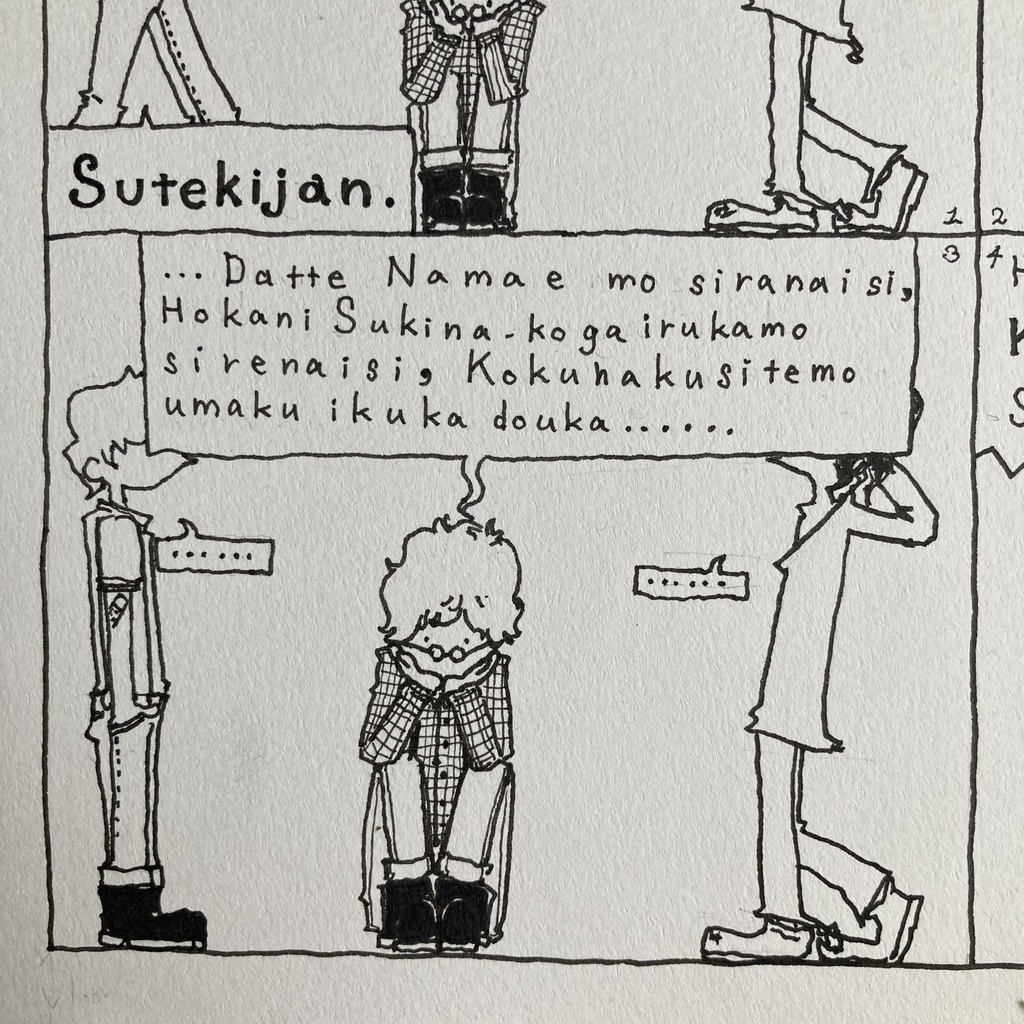 Sutekijan.
1
2
3
4
... Datte Namae mo siranaisi,
Hokani Sukina-koga irukamo
sirenaisi, Kokuhakusitemo
umaku ikuka douka......
......
......